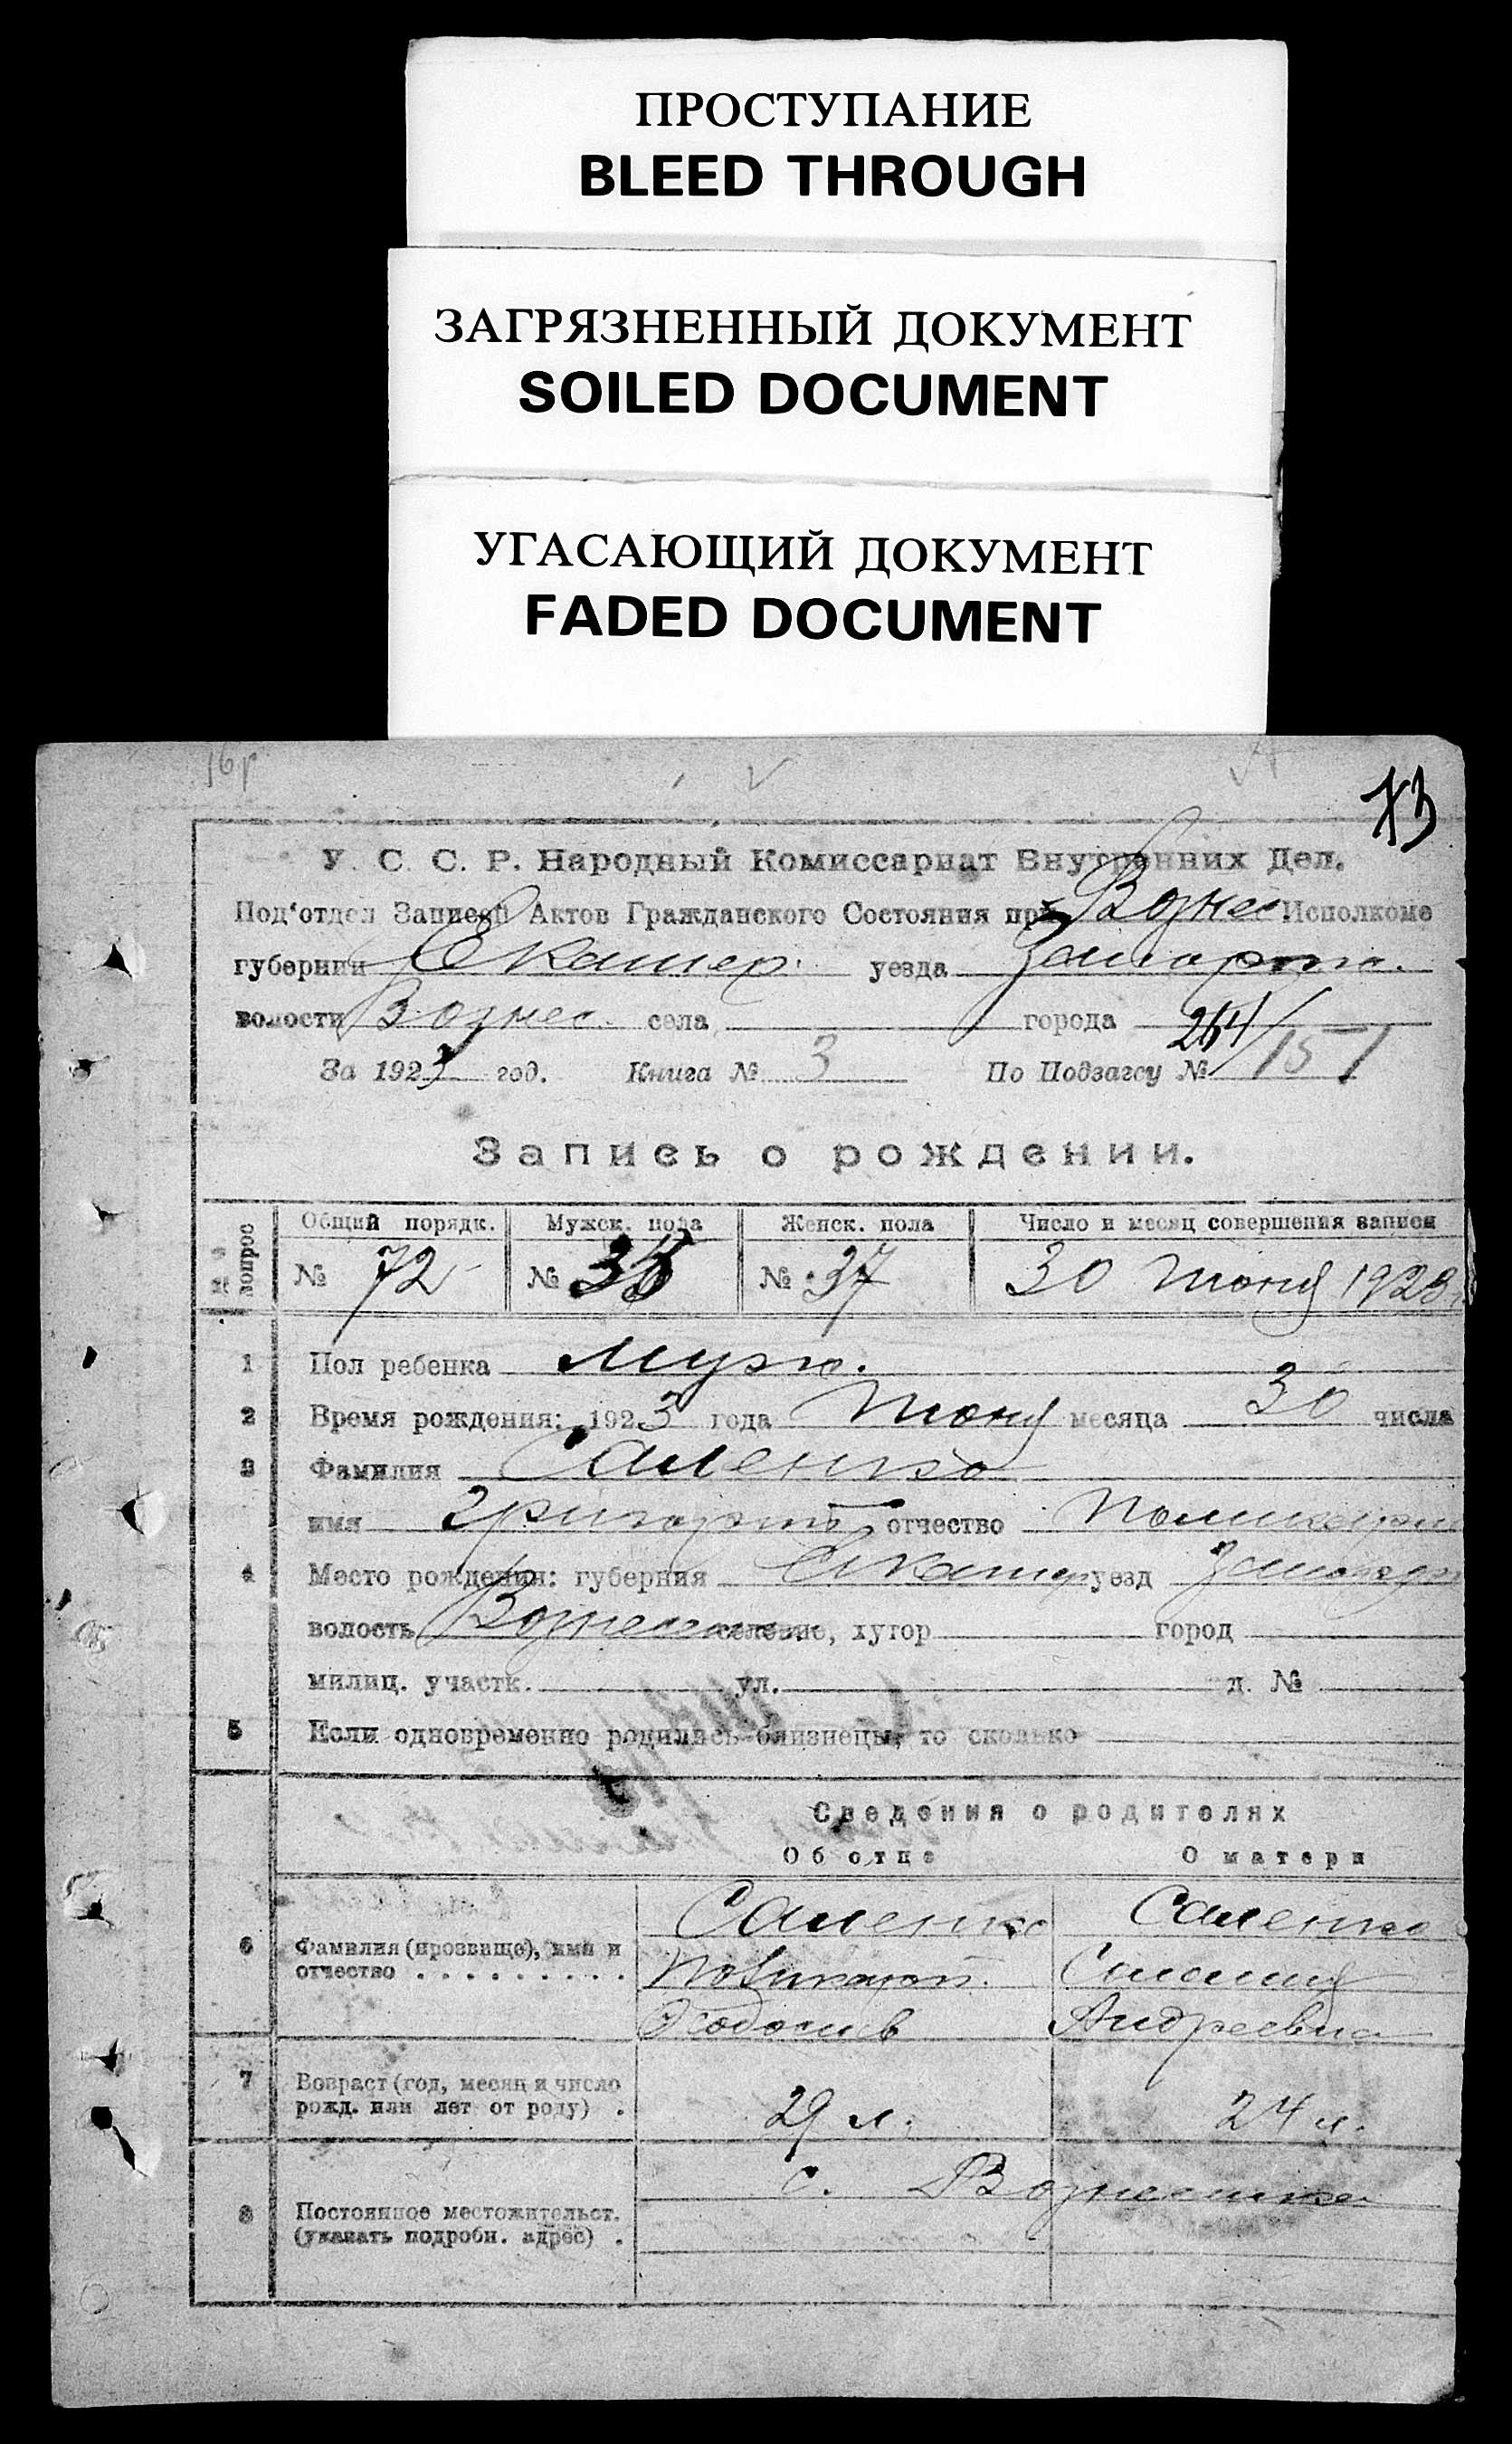 ПРОСТУПАНИЕ
BLEED THROUGH
ЗАГРЯЗНЕННЫЙ ДОКУМЕНТ
SOILED DOCUMENT
УГАСАЮЩИЙ ДОКУМЕНТ
FADED DOCUMENT
73
У. С. С. Р. Народный Комиссариат Внутренних Дел.
Под‘отдел Записей Актов Гражданского Состояния при Вознес Исполкоме
губернии Екатер. уезда
волости Вознес. села города 264/
За 1923 год. Книга № 3 По Подзагсу № 151
Запись о рождении.
№№ вопрос Общий порядк. Мужск. пола Женск. пола Число и месяц совершения записи
№ 72 № 35 № 37 30 июня 1923 г.
1 Пол ребенка мужс.
2 Время рождения: 1923 года июня месяца 30 числа
3 Фамилия Саленко
имя Григорий отчество
4 Место рождения: губерния Екатер уезд
волость селение, хутор город
милиц. участк. ул. д. №
5 Если одновременно родились близнецы, то сколько
Сведения о родителях
Об отце О матери
6 Фамилия (прозвище), имя и отчество Саленко Саленко
Поликарп
Феодосиев Андреевна
7 Возраст (год, месяц и число рожд. или лет от роду) 29 л. 24 л.
8 Постоянное местожительст. (указать подробн. адрес) с. Вознесенка